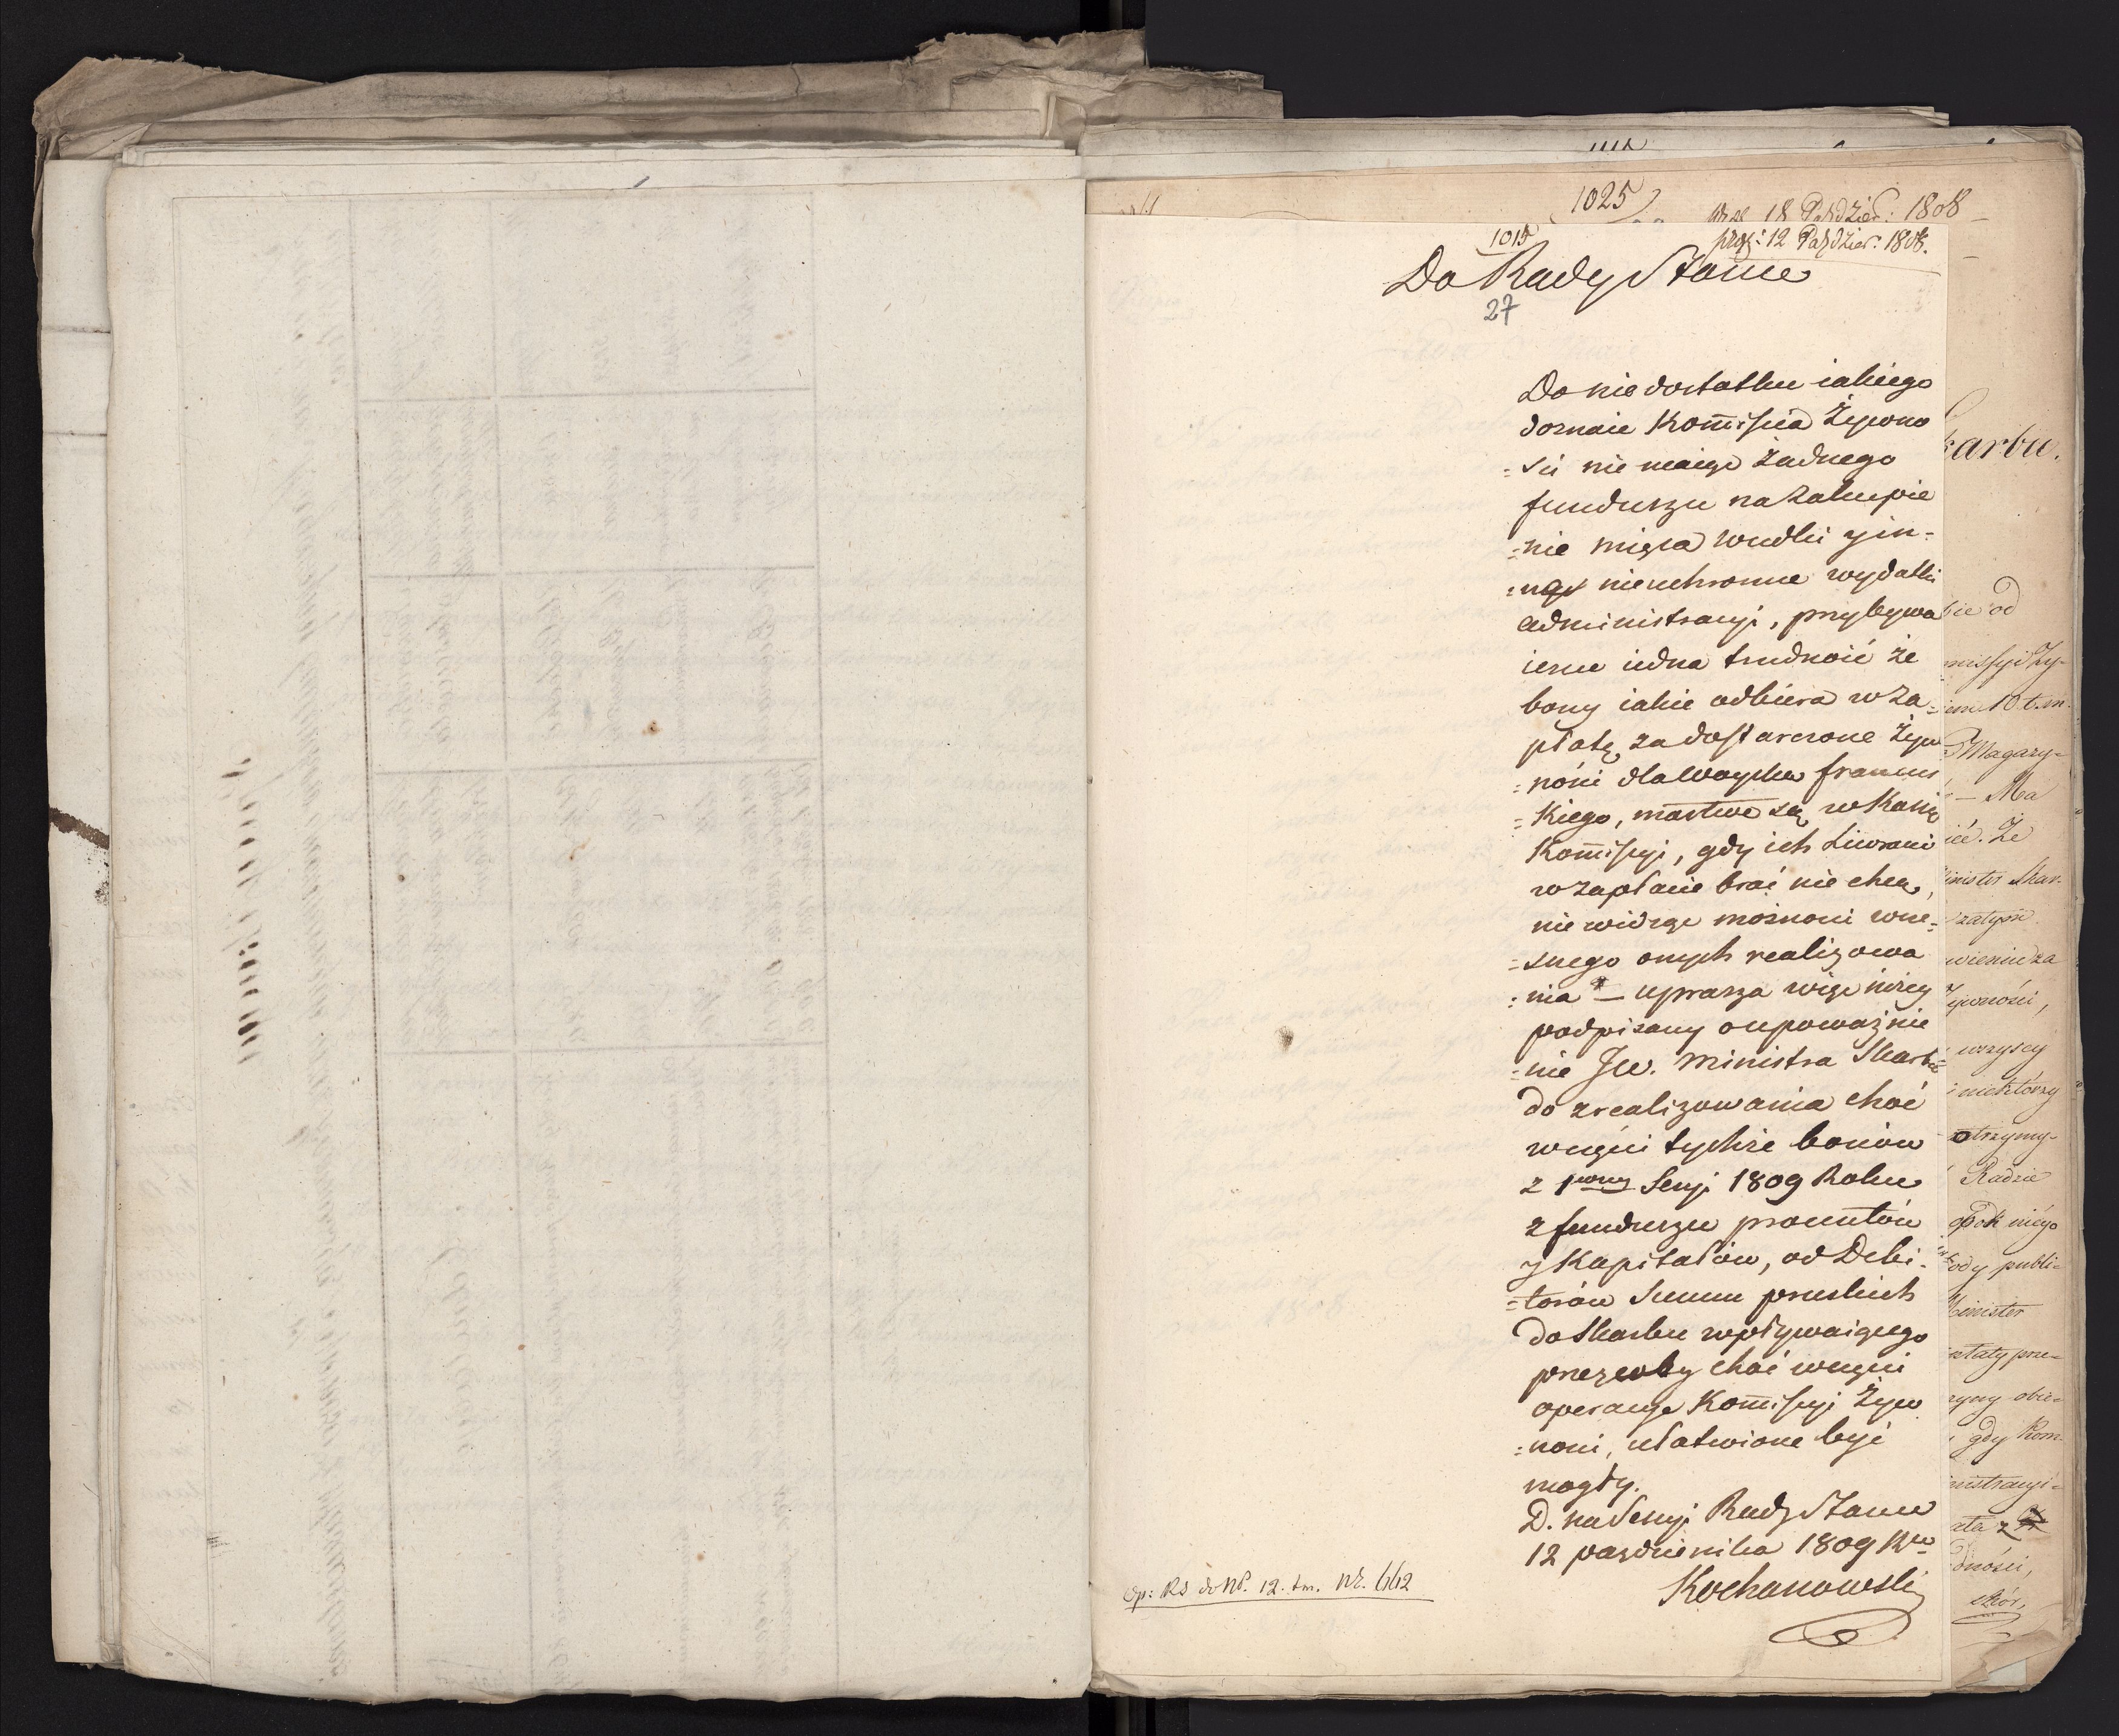 1025
18 Paźdźier: 1808
1015
prez: 12 Paźdźier: 1808.
Do Rady Stanu
27
Do niedostatku iakiego
doznaie Kom̅issia Żywno
=ści nie maiąc żadnego
funduszu na zakupie
=nie mięsa wudki y in=
=ne nieuchronne wydatki
administracyi, przybywa
ieszcze iedna trudność że
bony iakie odbiera w za=
płatę za dostarczone Żyw
=ności dla Woyska francus
=kiego, martwe są w Kassie
Kom̅issyi, gdy ich Liwranci
w zapłacie brać nie chcą,
nie widząc możności wcze=
=snego onych realizowa
=nia — uprasza więc niżey
podpisany o upoważnie
=nie JW. Ministra Skarbu
do zrealizowania choć
w części tychże bonów
z 1wszey Seryi 1809 Roku
z funduszu procentów
y Kapitałów, od Debi=
=torów Summ pruskich
do Skarbu wpływaiącego
przezcoby choć w części
operacye Kom̅issyi Żyw
=ności, ułatwione być
mogły.
D. na Sessyi Rady Stanu
12 pazdziernika 1809 Rku
Kochanowski
Op: RS do NP. 12. tm. Nr. 662
karbu.
bie od
missyi Ży-
10 t. m.
Magazy-
— Ma
ić. Że
inister Skar-
zatym
ywności,
wszyscy
niektórzy
otrzymy-
Radzie
ody publi=
Minister
obie=
gdy Kom=
nistracyi=
dności,